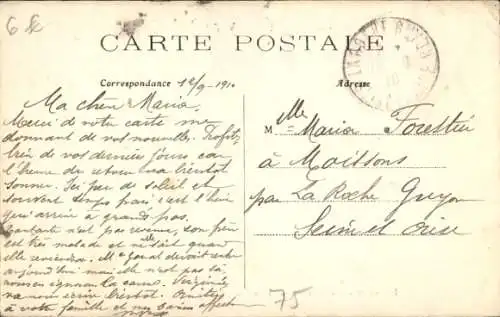 6 k
CARTE POSTALE
Correspondance 12/9-1910
Adresse
Ma chère Maria,
Merci de votre carte me
donnant de vos nouvelles. Profitez
bien de vos derniers jours car
l'heure du retour va bientôt
sonner. Ici pas de soleil et
souvent temps pris, c'est l'hiver
qui arrive à grands pas.
n'est pas revenue, son père
est très malade et ne sait quand
elle reviendra. Mlle devait
aujourd'hui mais elle n'est pas là,
nous en ignorons la cause.
va nous écrire bientôt. Amitiés
à votre famille et nos bons
Mlle Maria Forestier
à Moissons
par La Roche Guyon
Seine et Oise
75